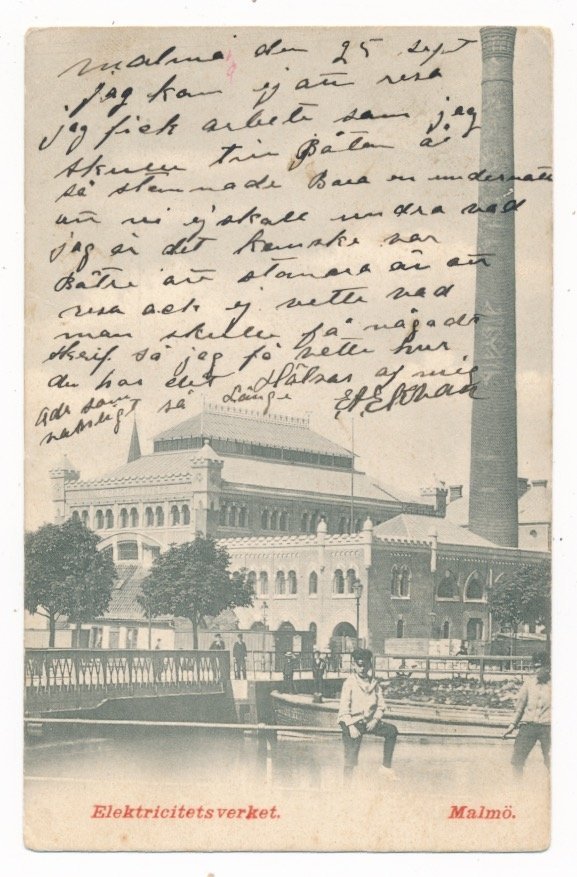 Malmö den 25 sept
Jag kan ej att resa
jag fick arbete som jag
skulle till Båten är
så stannade Bara en underrätt
att ni ej skall undra vad
jag är det kanske var
Bätre att stanna är att
resa ack ej vette vad
man skulle få något
skrif så jag få vette hur
du har det Hälsar af mig
Adr som så Länge
vanligt
Elektricitetsverket.
Malmö.